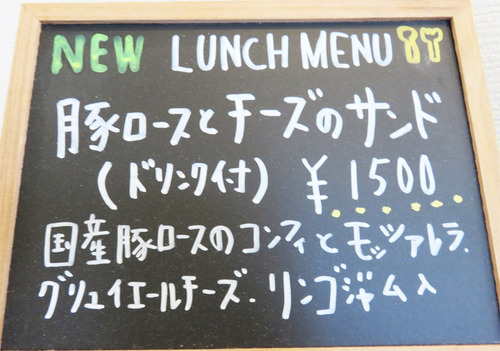 NEW LUNCH MENU
豚ロースとチーズのサンド
(ドリンク付) ¥1500
国産豚ロースのコンフィとモッツァレラ.
グリュイエールチーズ.リンゴジャム入